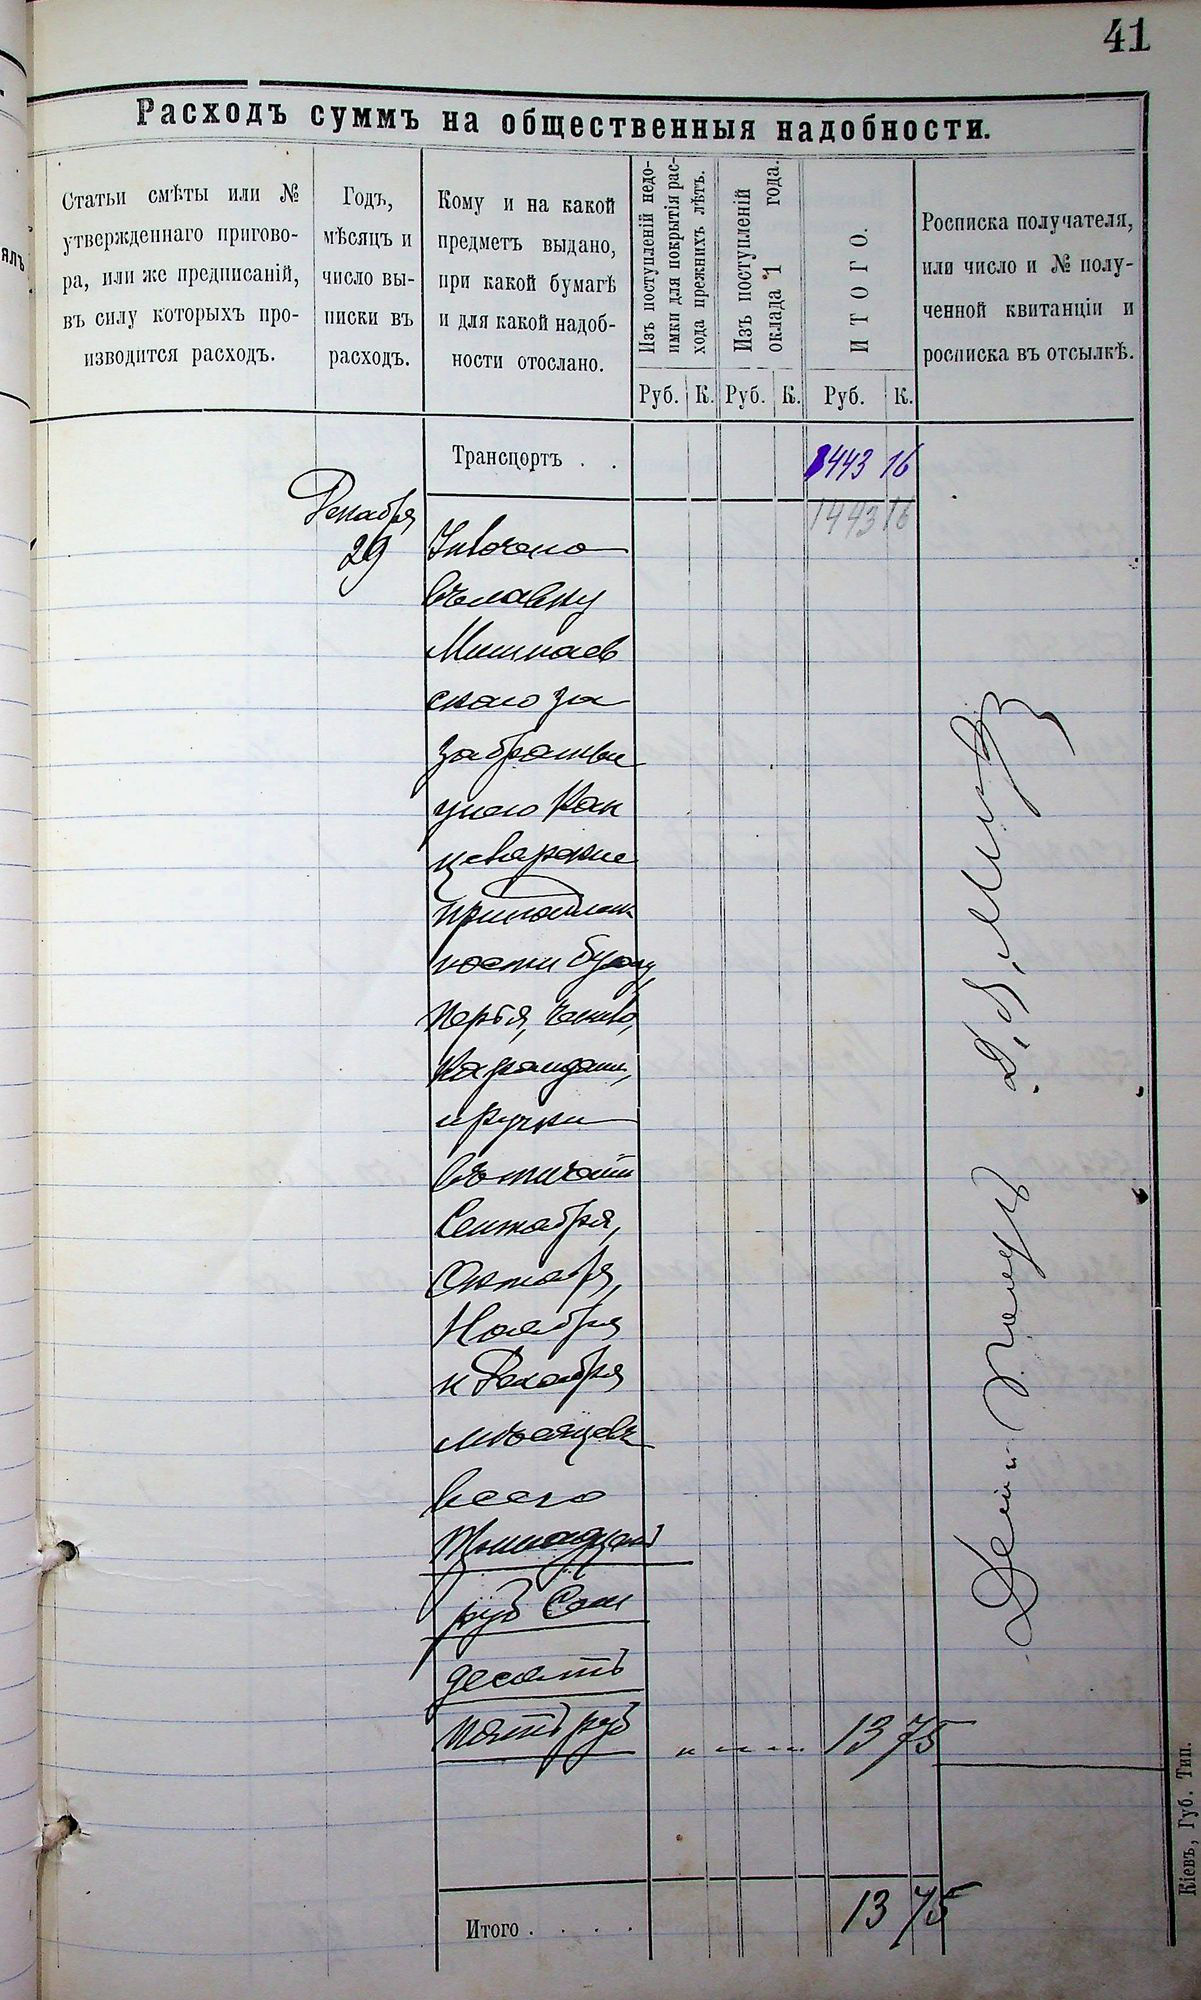 41
Расходъ суммъ на общественныя надобности.
Статьи смѣты или №
утвержденнаго пригово-
ра, или же предписаній,
въ силу которыхъ про-
изводится расходъ.
Годъ,
мѣсяцъ и
число вы-
писки въ
расходъ.
Кому и на какой
предметъ выдано,
при какой бумагѣ
и для какой надоб-
ности отослано.
Изъ поступленій недо-
имки для покрытія рас-
хода прежнихъ лѣтъ.
Изъ поступленій
оклада 1 года.
ИТОГО.
Росписка получателя,
или число и № полу-
ченной квитанціи и
росписка въ отсылкѣ.
Руб. К. Руб. К. Руб. К.
Транспортъ . . 1443 16
1443 16
Декабря
29
въ лавку
скаго за
забратые
у него Кан
целярские
принадлеж
ности бумагу,
перья, чернило,
карандаши,
и ручки
Сентября,
Октября,
Ноября
и Декабря
мѣсяцевъ
всего
Тринадцать
руб Сем
десять
пять 13 75
Итого . . . . 13 75
Кіевъ, Губ. Тип.